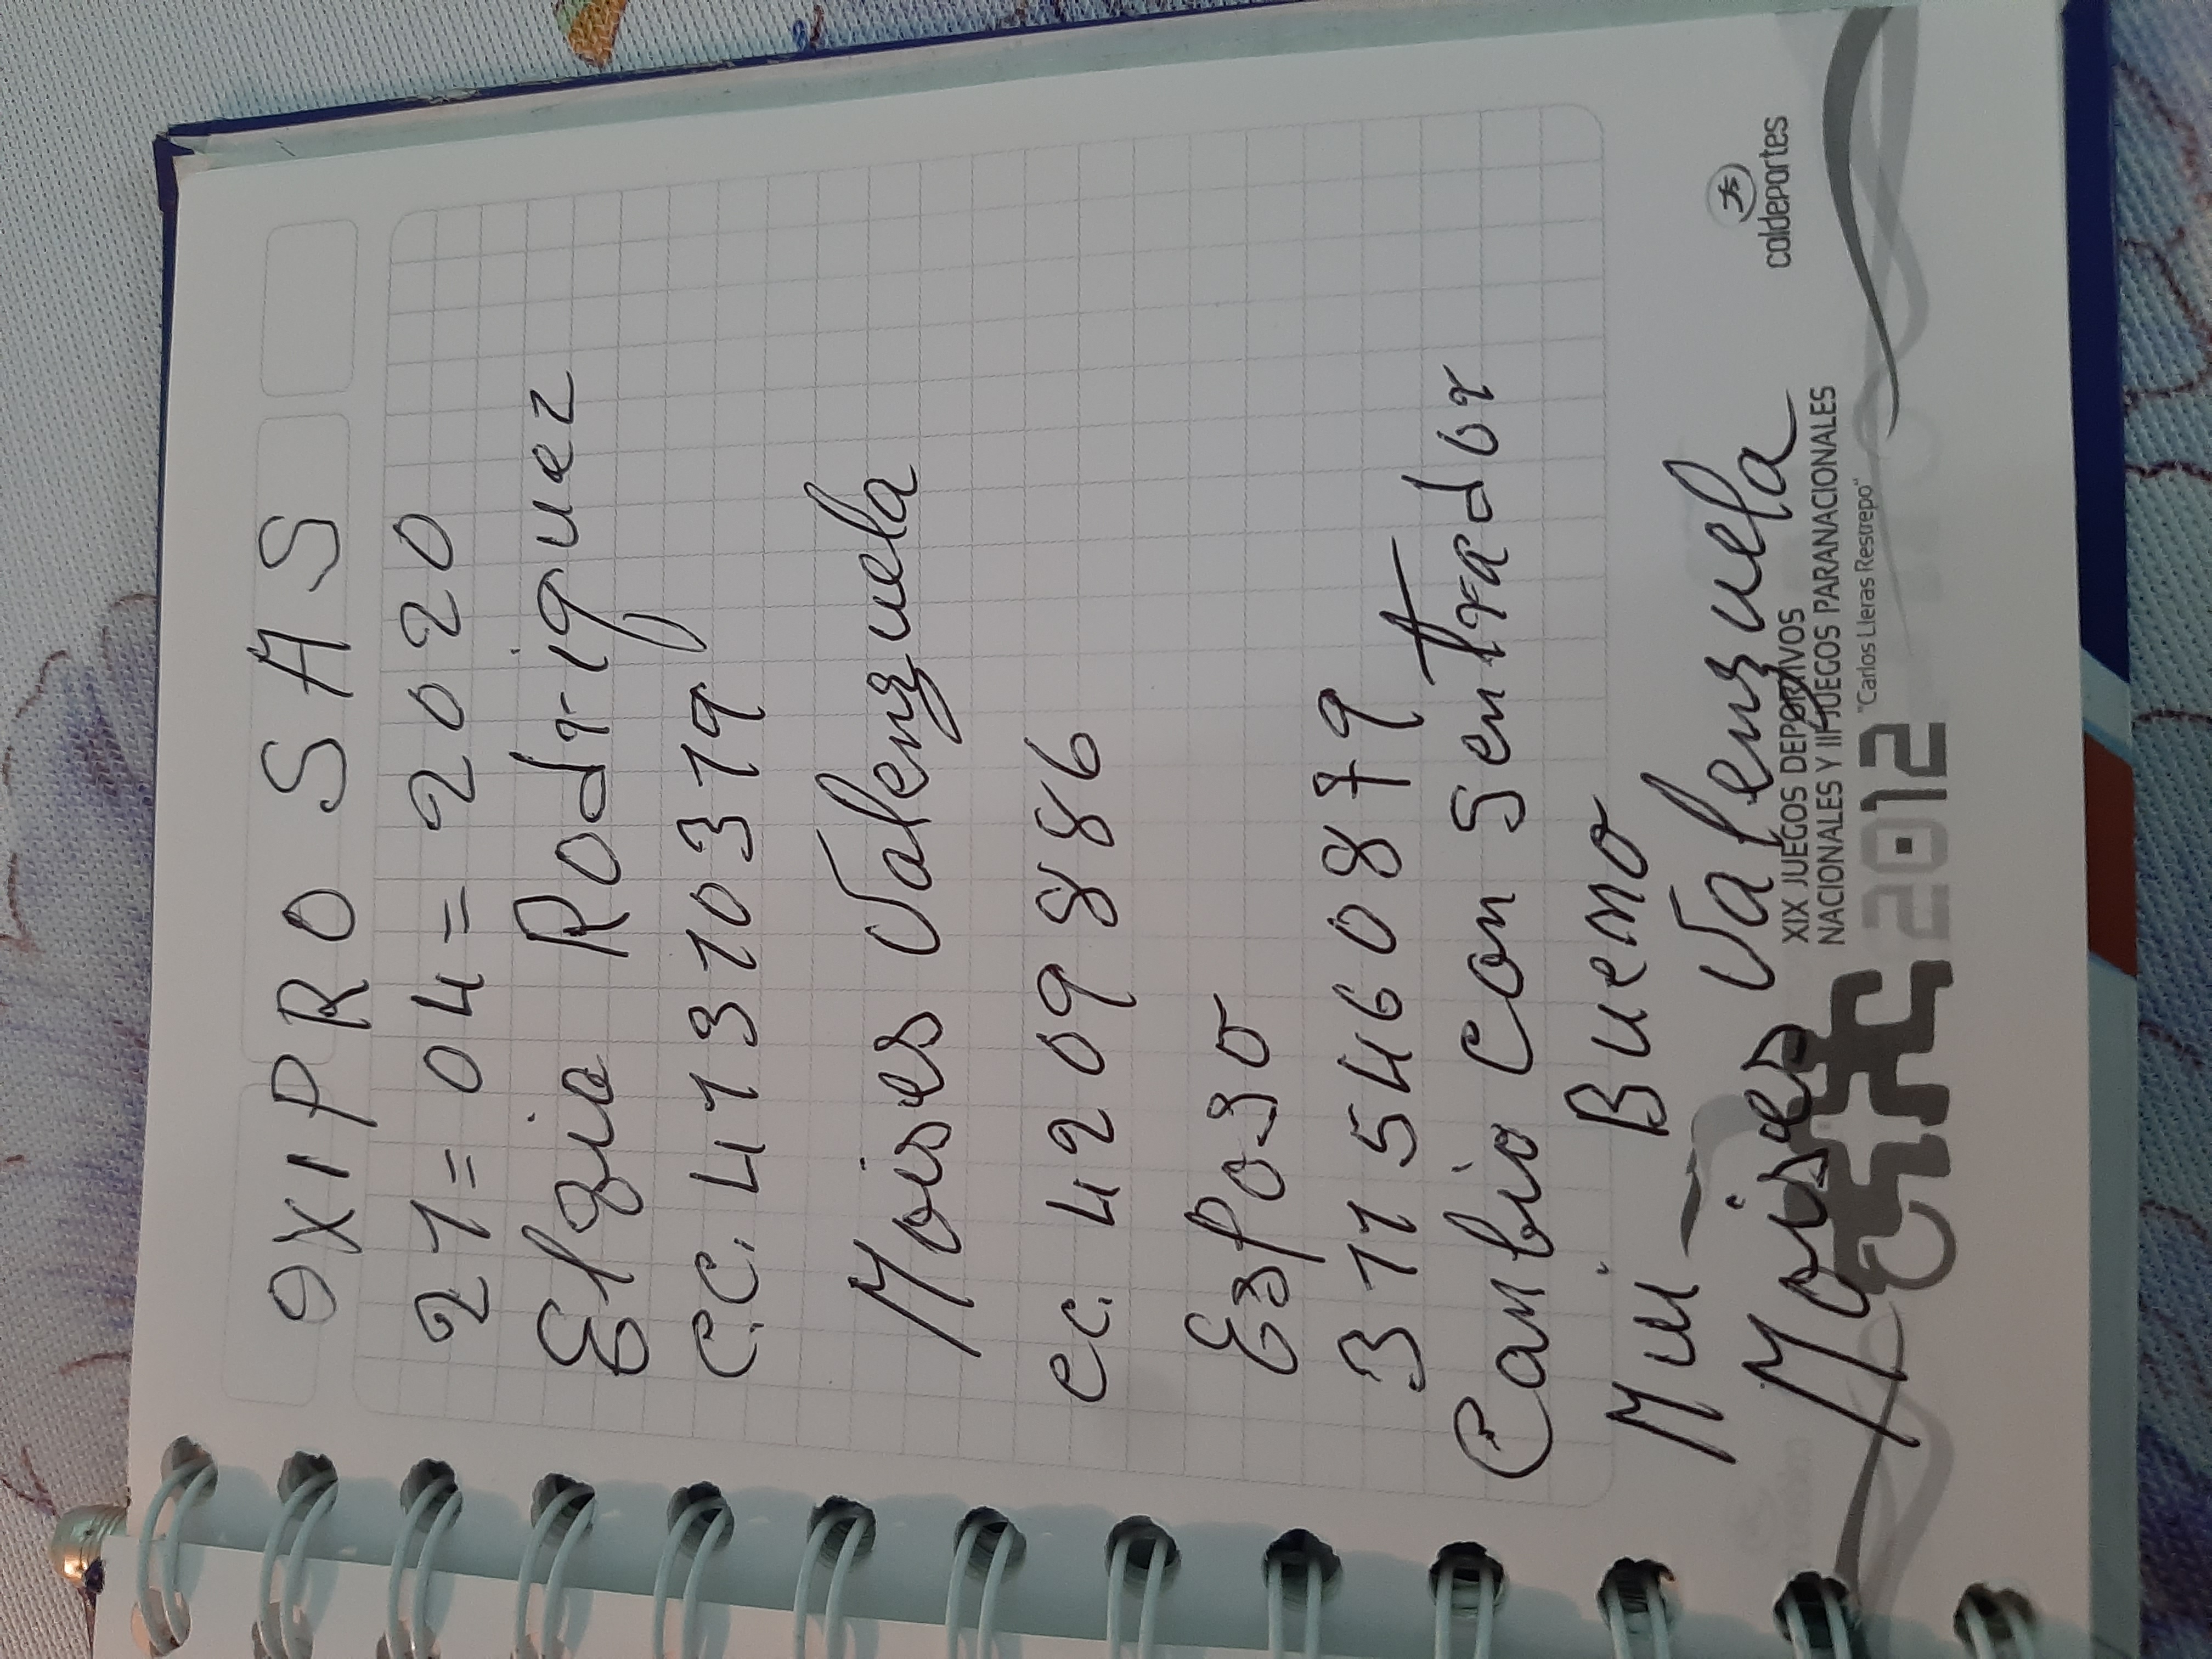 OXIPRO SAS
21=04=2020
Elzia Rodriguez
c.c. 41310319
Moises Valenzuela
cc. 4209886
Esposo
3115460879
Cambio ConSentrador
Mui Bueno
Moises Valenzuela
XIX JUEGOS DEPORTIVOS
NACIONALES Y III JUEGOS PARANACIONALES
2012 "Carlos Lleras Restrepo"
coldeportes